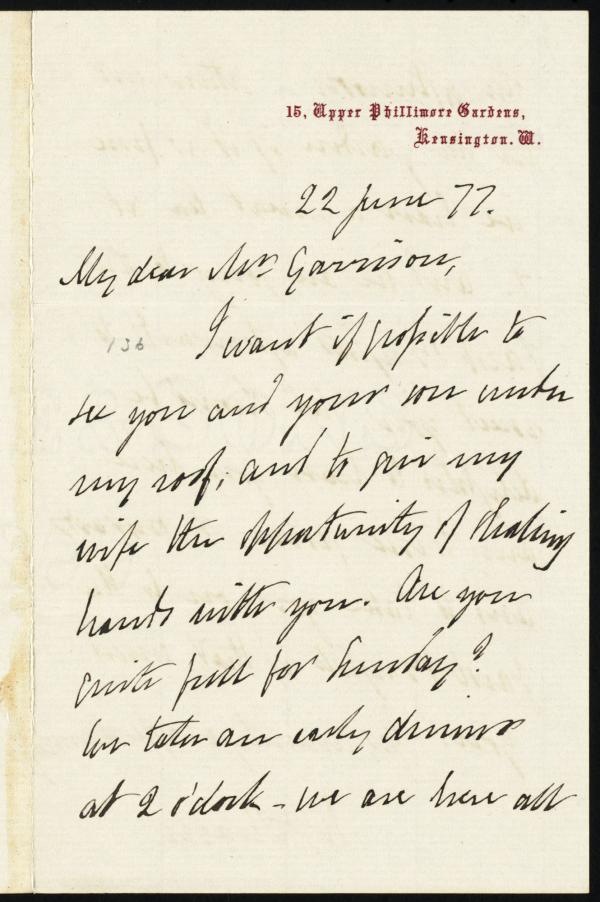 15, Upper Phillimore Gardens,
Kensington. W.
22 June 77.
My dear Mr Garrison,
136
I want if possible to
see you and your son under
my roof; and to give my
wife the opportunity of shaking
hands with you. Are you
quite full for Sunday?
We take an early dinner
at 2 o'clock - we are here all